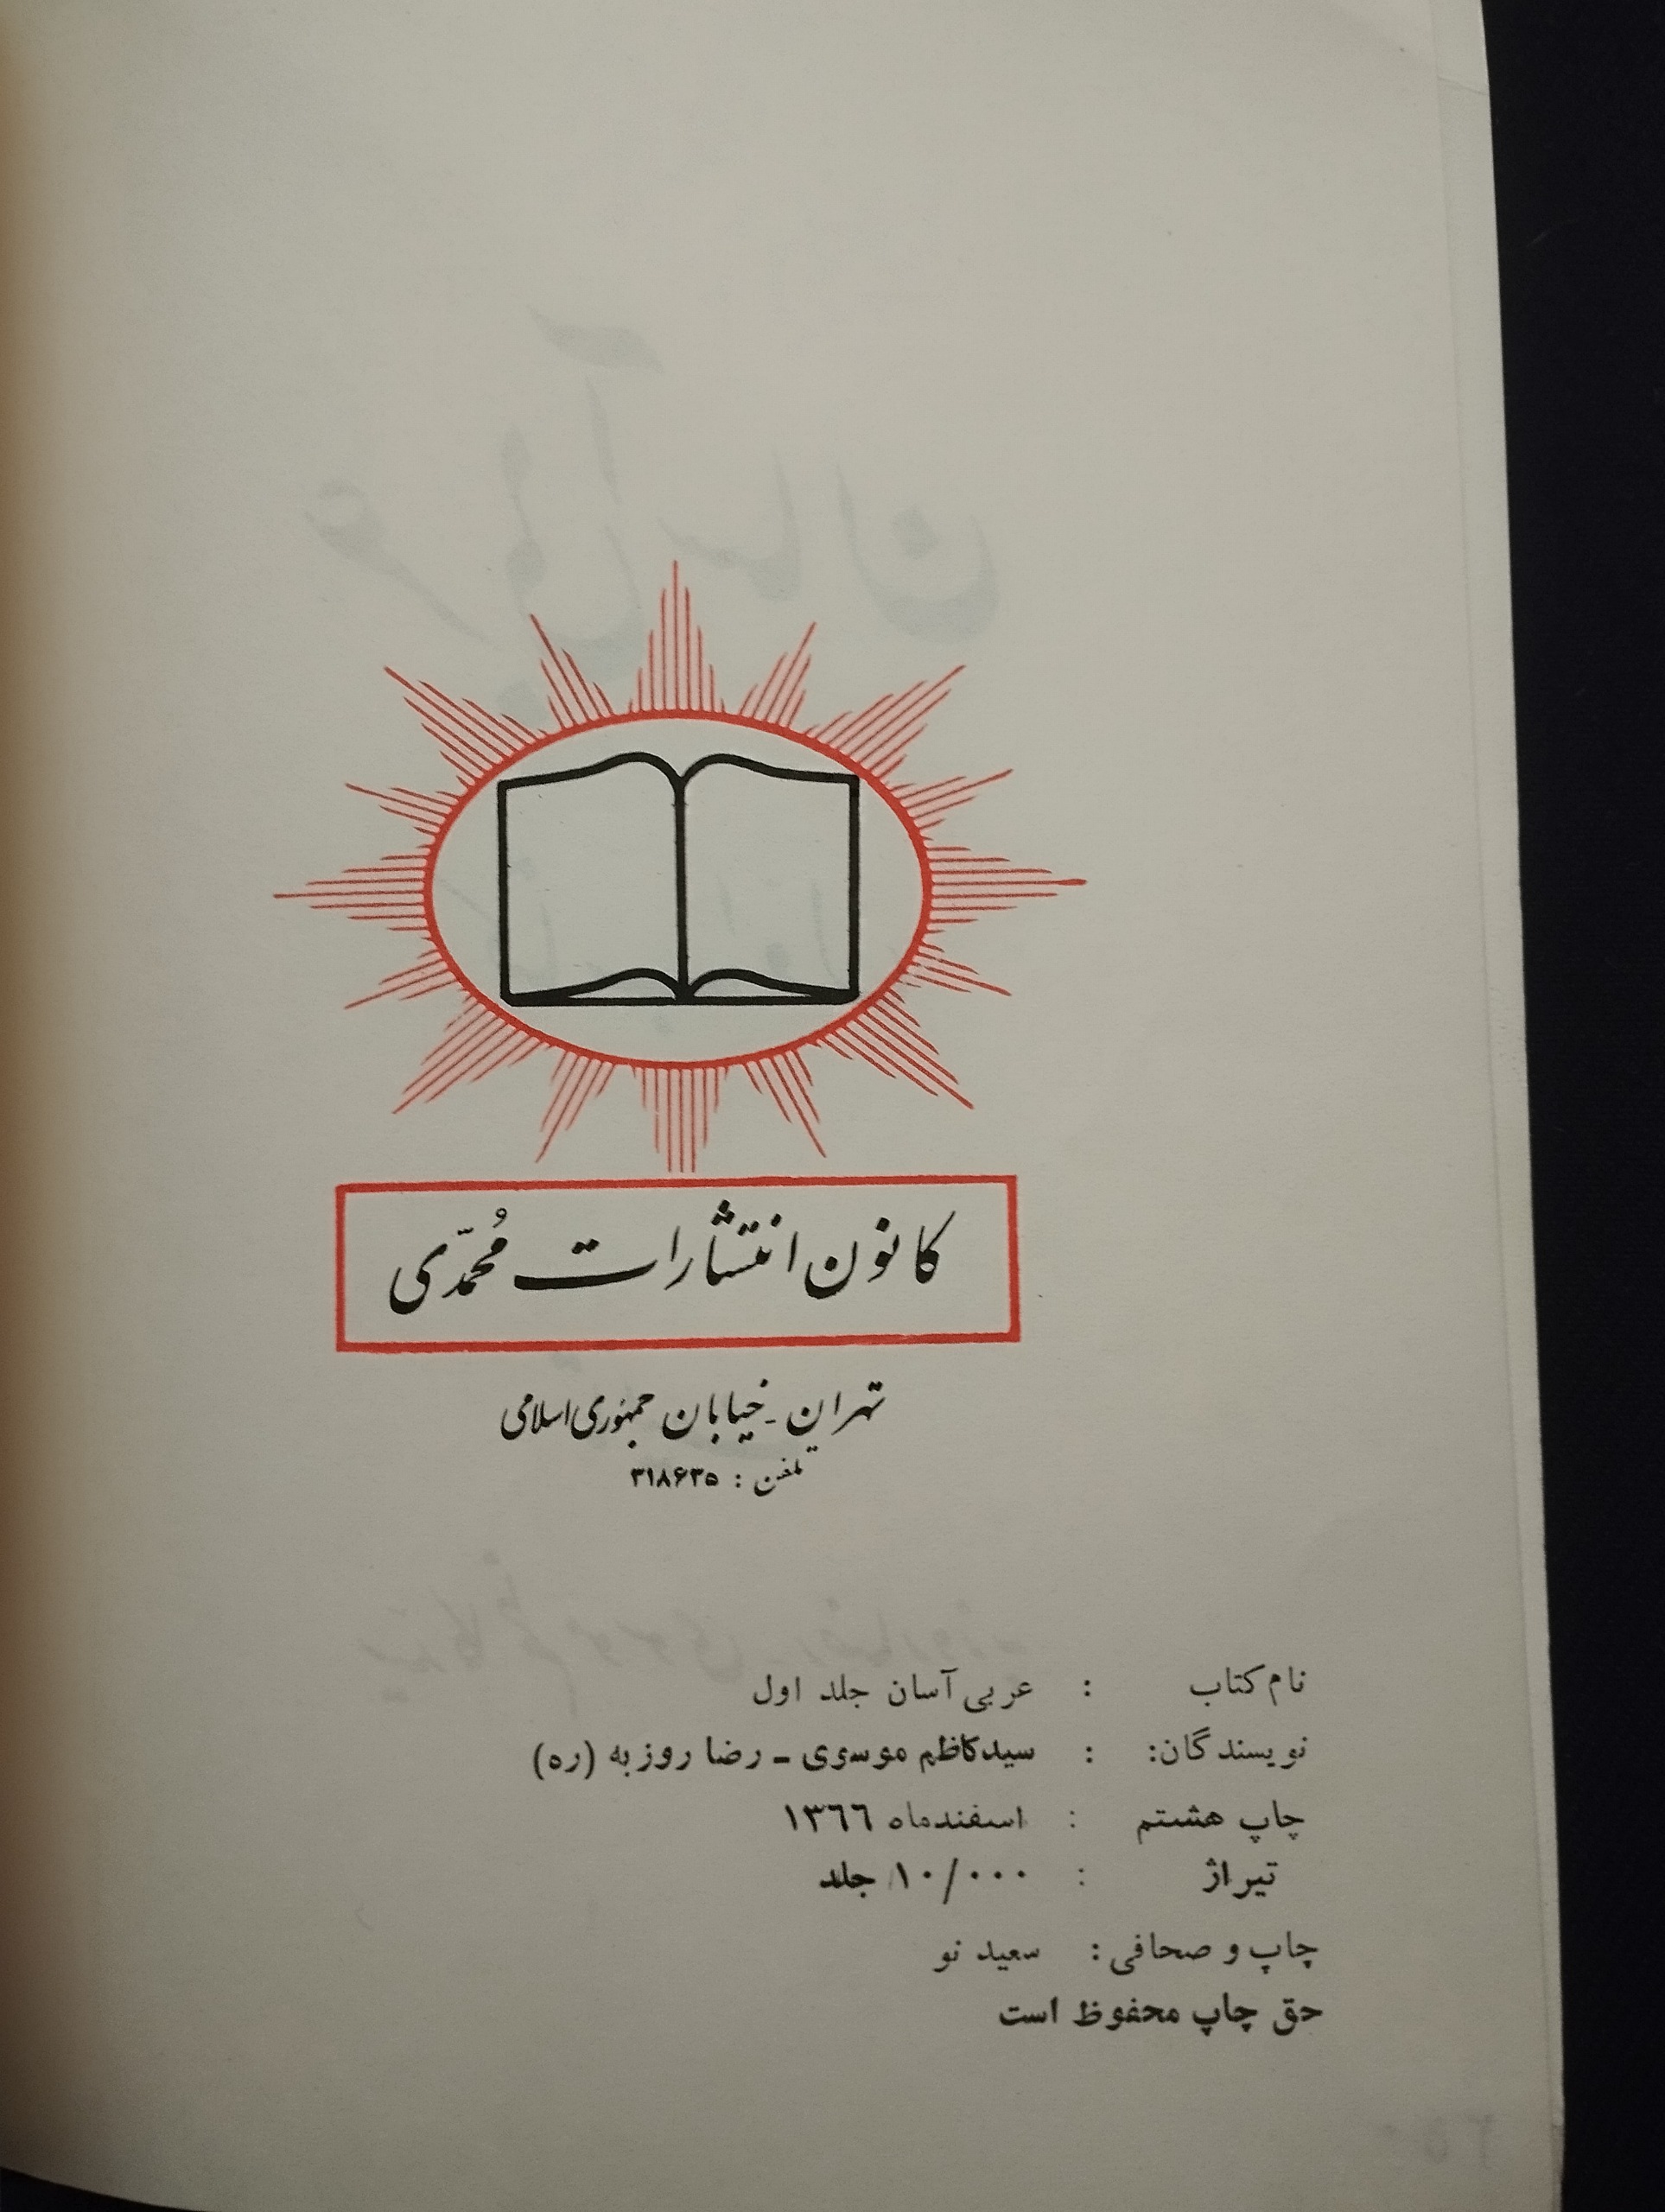 کانون انتشارات مُحمّدی
تهران - خیابان جمهوری اسلامی
تلفن : ۳۱۸۶۳۵
نام کتاب : عربی آسان جلد اول
نویسندگان: : سید کاظم موسوی ـ رضا روزبه (ره)
چاپ هشتم : اسفندماه ۱۳٦٦
تیراژ : ۱۰/۰۰۰ جلد
چاپ و صحافی: سعید نو
حق چاپ محفوظ است